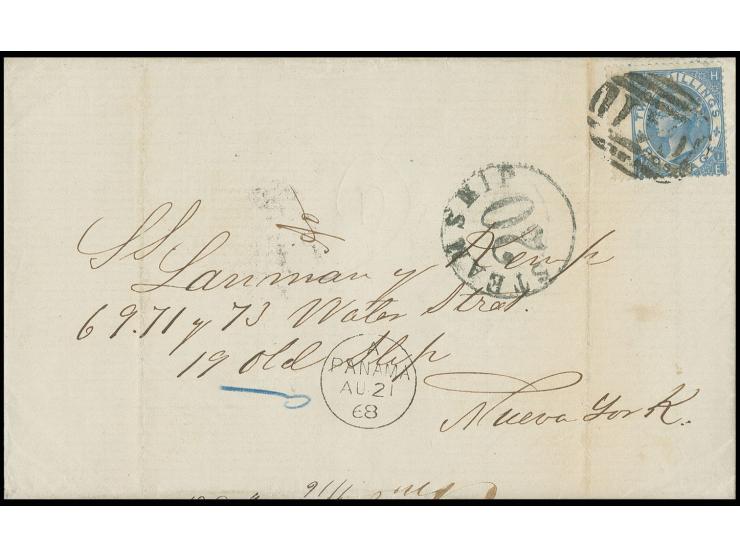 TWO SHILLINGS
POSTAGE
H
E
STEAMSHIP
20
SS. Lanman y Kemp
69.71 y 73 Water Street.
19 Old Slip
PANAMA
AU 21
68
Nueva York.